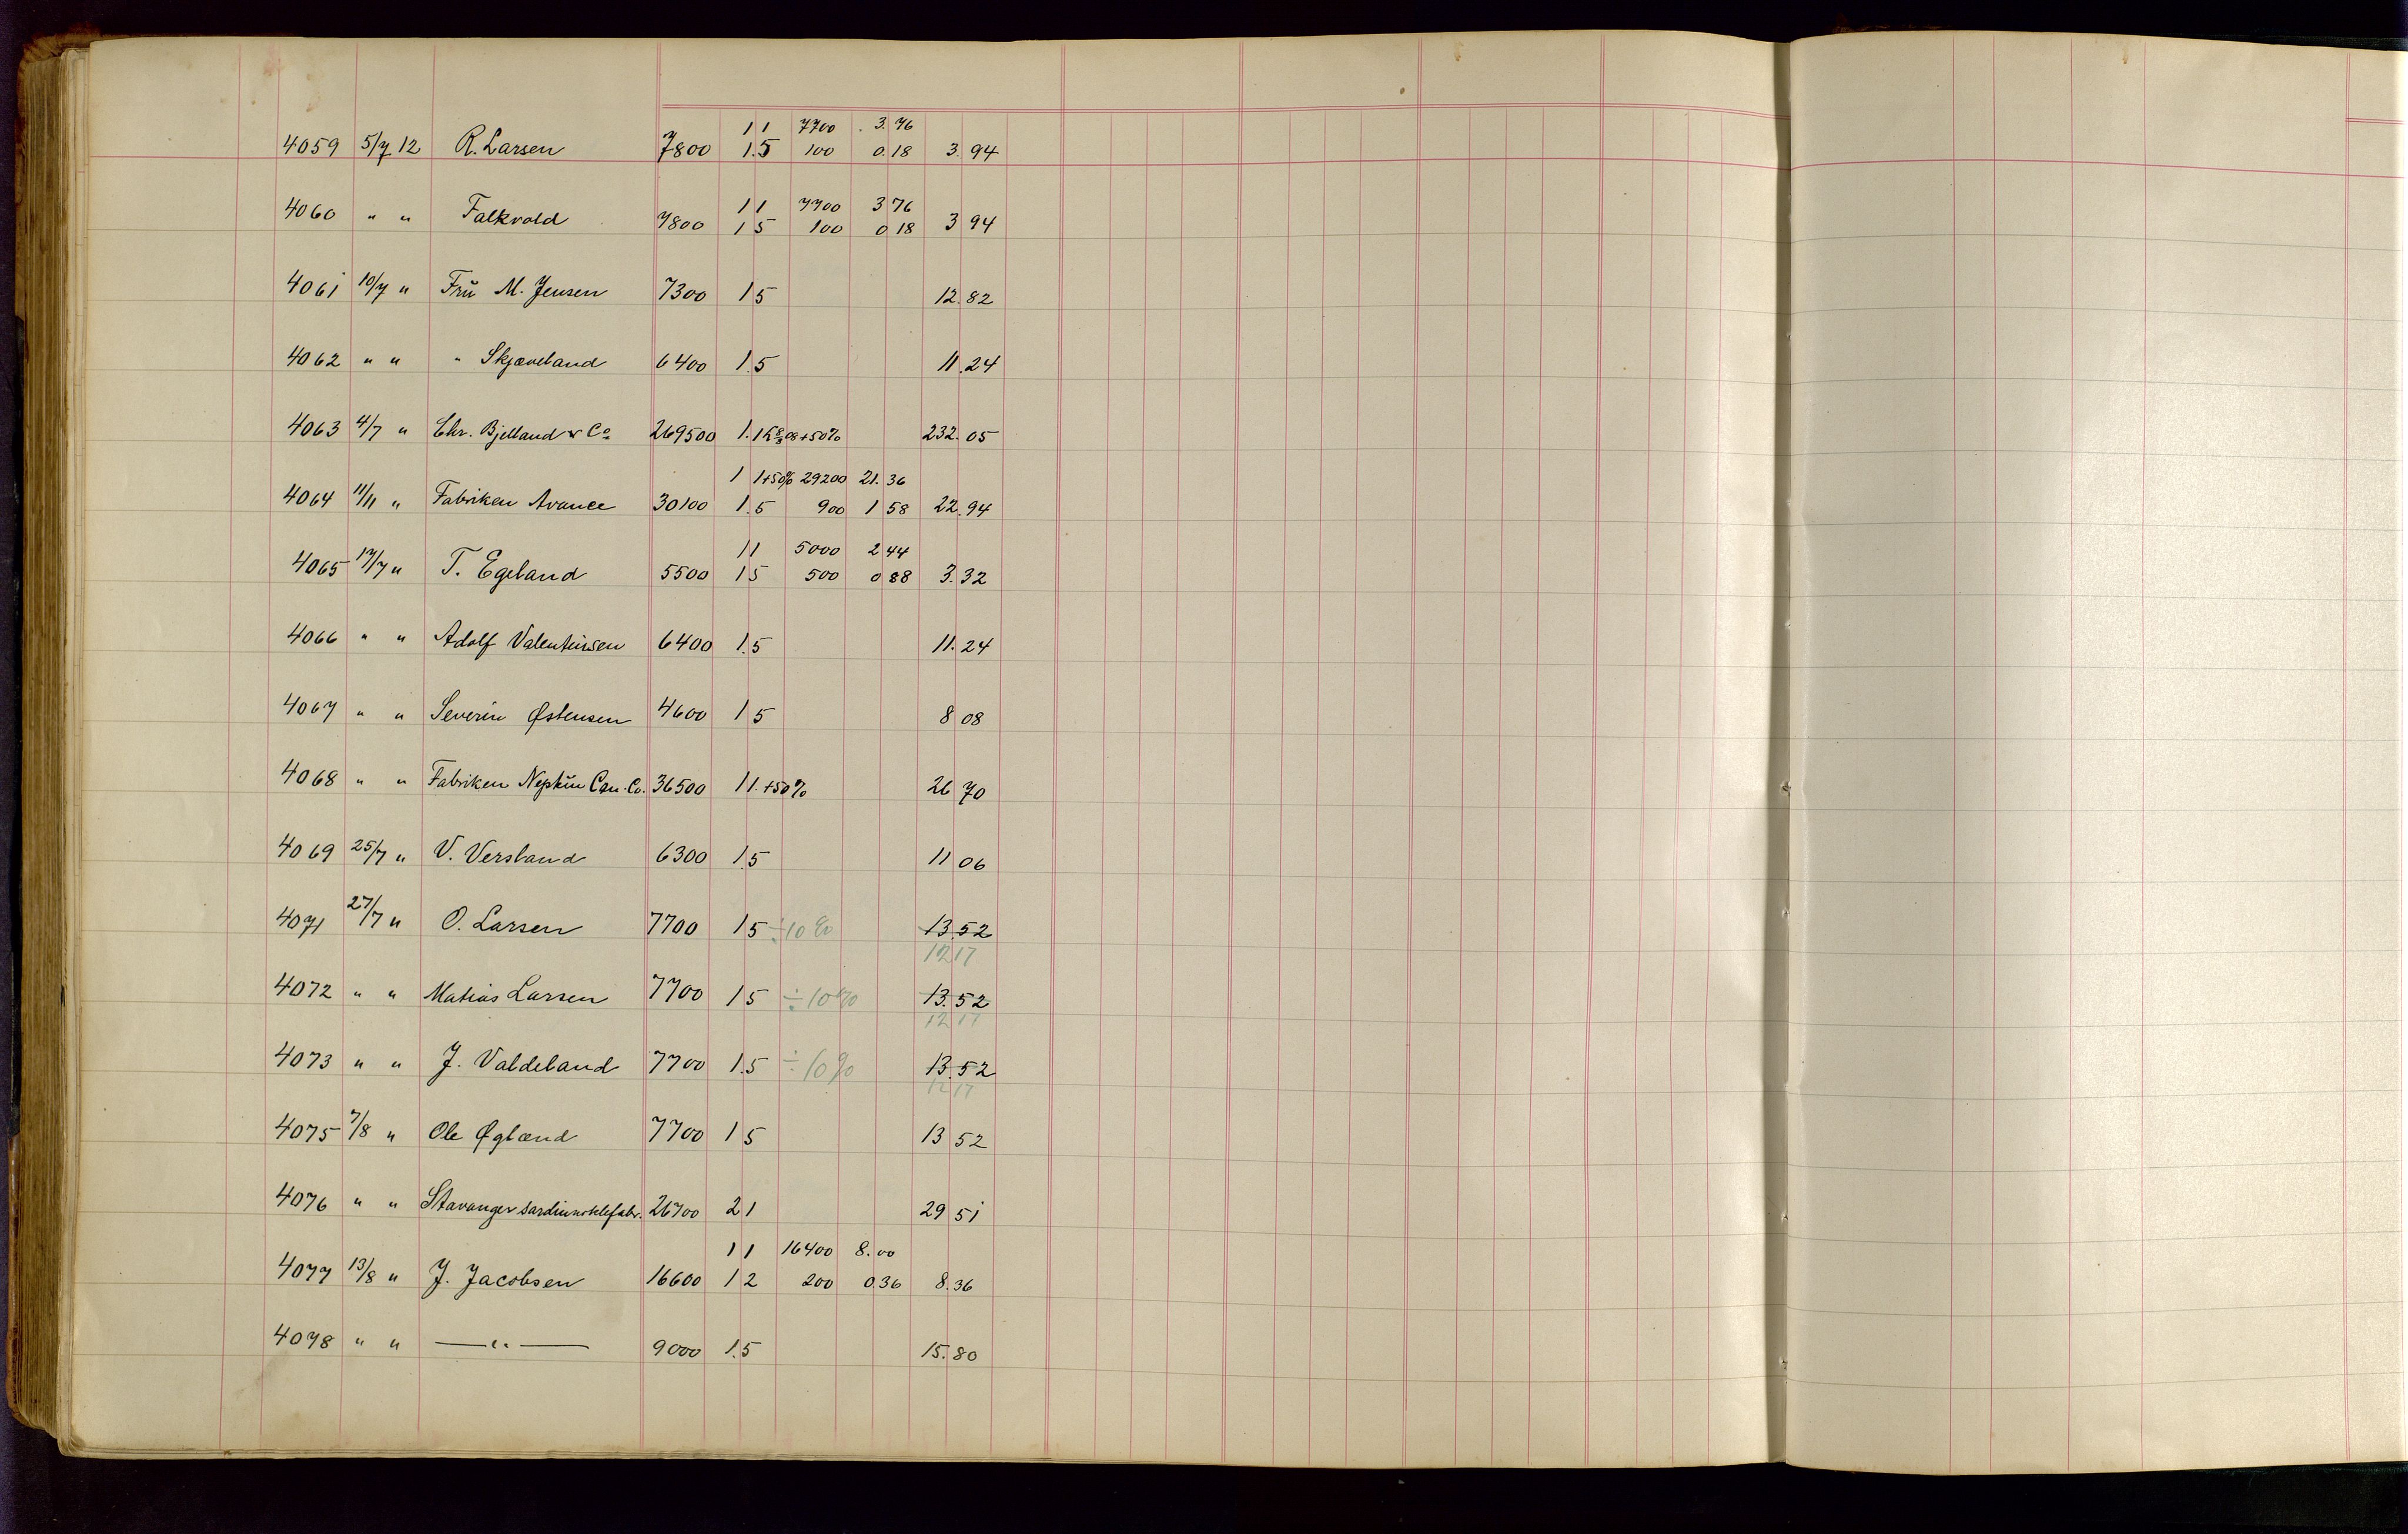 11 7700 3.76
4059 5/7 12 R. Larsen 7800 1.5 100 0.18 3.94
11 7700 3 76
4060 " " Falkvold 7800 1 5 100 0 18 3 94
4061 10/7 " Frŭ M. Jensen 7300 1 5 12.82
4062 " " " Skjæveland 6400 1.5 11.24
4063 4/7 " Chr. Bjelland & Co 269500 +50% 232.05
1 1+50% 29200 21.36
4064 11/11 " Fabriken Avance 30100 1.5 900 1 58 22.94
11 5000 2 44
4065 17/7 " T. Egeland 5500 1 5 500 0 88 3.32
4066 " " Adolf Valentinsen 6400 1.5 11.24
4067 " " Severin Østensen 4600 1 5 8 08
4068 " " Fabriken Neptŭn Can. Co. 36500 11.+50% 26 70
4069 25/7 " V. Versland 6300 1.5 11 06
4071 27/7 " O. Larsen 7700 1 5 ÷10% 13.52
12 17
4072 " " Matias Larsen 7700 1 5 ÷10% 13.52
12 17
4073 " " J. Valdeland 7700 1.5 ÷10% 13.52
12 17
4075 7/8 " Ole Øglænd 7700 1 5 13 52
4076 " " Stavanger 26700 2 1 29 51
11 16400 8.00
4077 13/8 " J. Jacobsen 16600 1 2 200 0.36 8.36
4078 " " —"— 9000 1.5 15.80